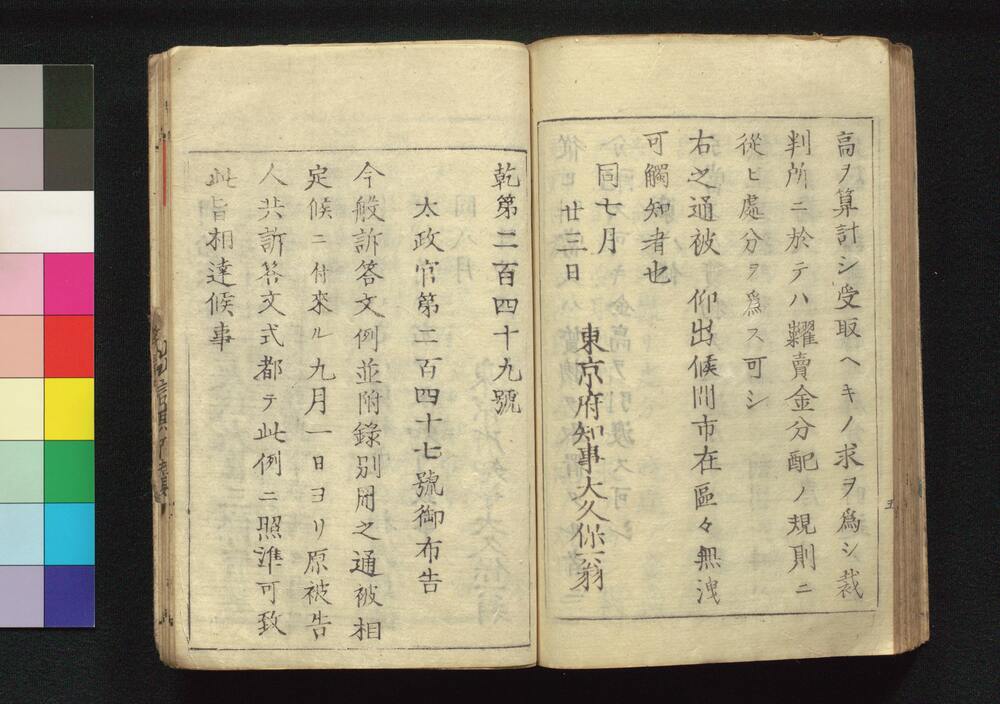 高ヲ算計シ受取ヘキノ求ヲ爲シ裁
判所ニ於テハ糶賣金分配ノ規則ニ
從ヒ處分ヲ爲ス可シ
右之通被 仰出候間市在區々無洩
可觸知者也
同七月
廿三日
東京府知事大久保一翁
五
乾第二百四十九號
太政官第二百四十七號御布告
今般訴答文例並附錄別冊之通被相
定候ニ付來ル九月一日ヨリ原被告
人共訴答文式都テ此例ニ照準可致
此旨相達候事